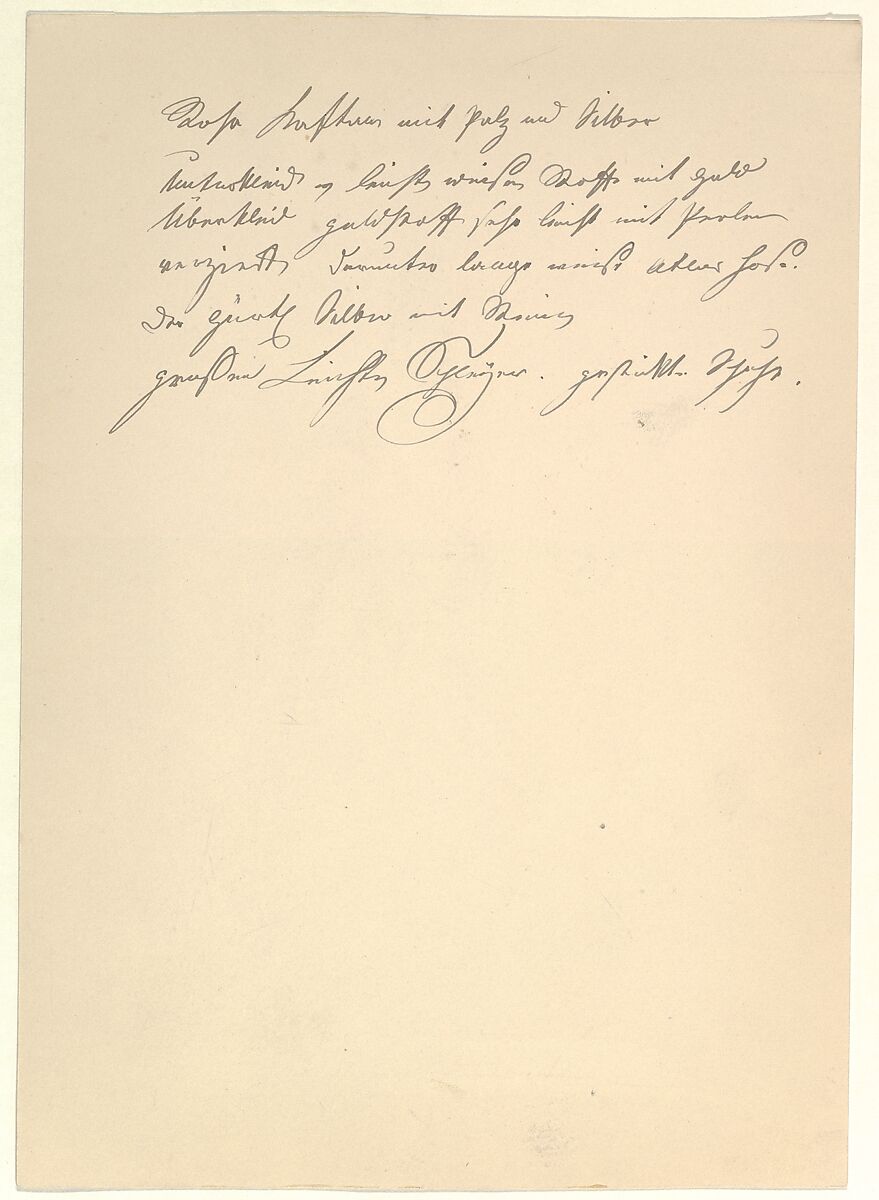 Rosa Kaftan mit Pelz und Silber
Unterkleid leicht weisser Stoff mit Gold
Überkleid goldstoff sehr leicht mit Perlen
verziert darunter lange weise Atlas Hose.
Der Gürtel Silber mit Steinen
großen Leichten Schleyer. gestickte Schuhe.